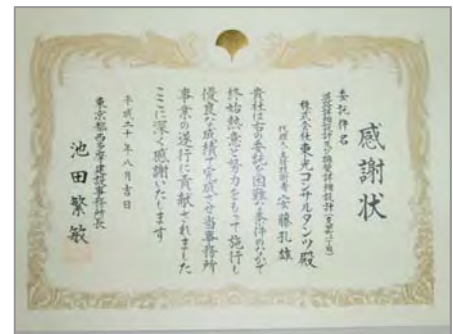 感謝状
委託件名
道路詳細設計及び擁壁詳細設計
株式会社東光コンサルタンツ殿
代理人・主任技術者 安藤孔雄
貴社は右の委託を困難な条件のなかで
終始熱意と努力をもって施行し
優良な成績で完成させ当事務所
事業の遂行に貢献されました
ここに深く感謝いたします
平成二十年八月吉日
東京都西多摩建設事務所長
池田繁敏